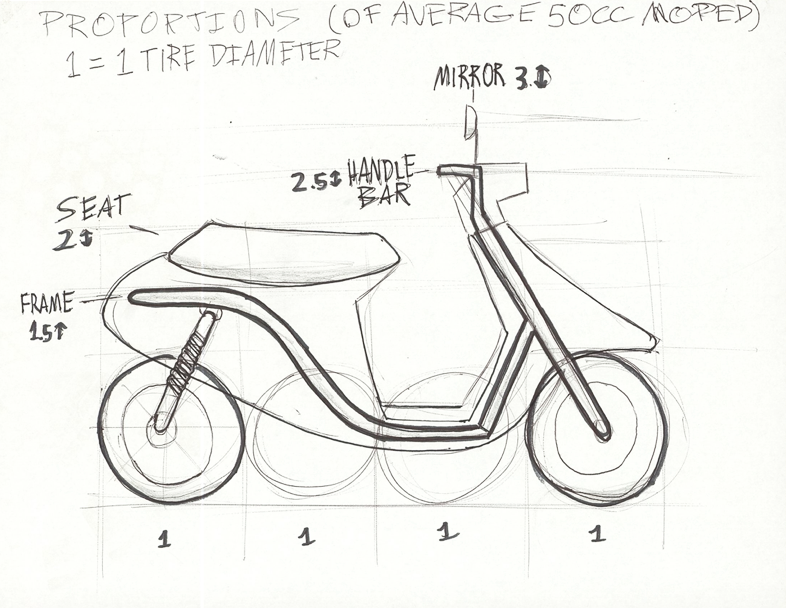 PROPORTIONS (OF AVERAGE 50CC MOPED)
1 = 1 TIRE DIAMETER
MIRROR 3↕
2.5↕ HANDLE
BAR
SEAT
2↕
FRAME
1.5↑
1 1 1 1